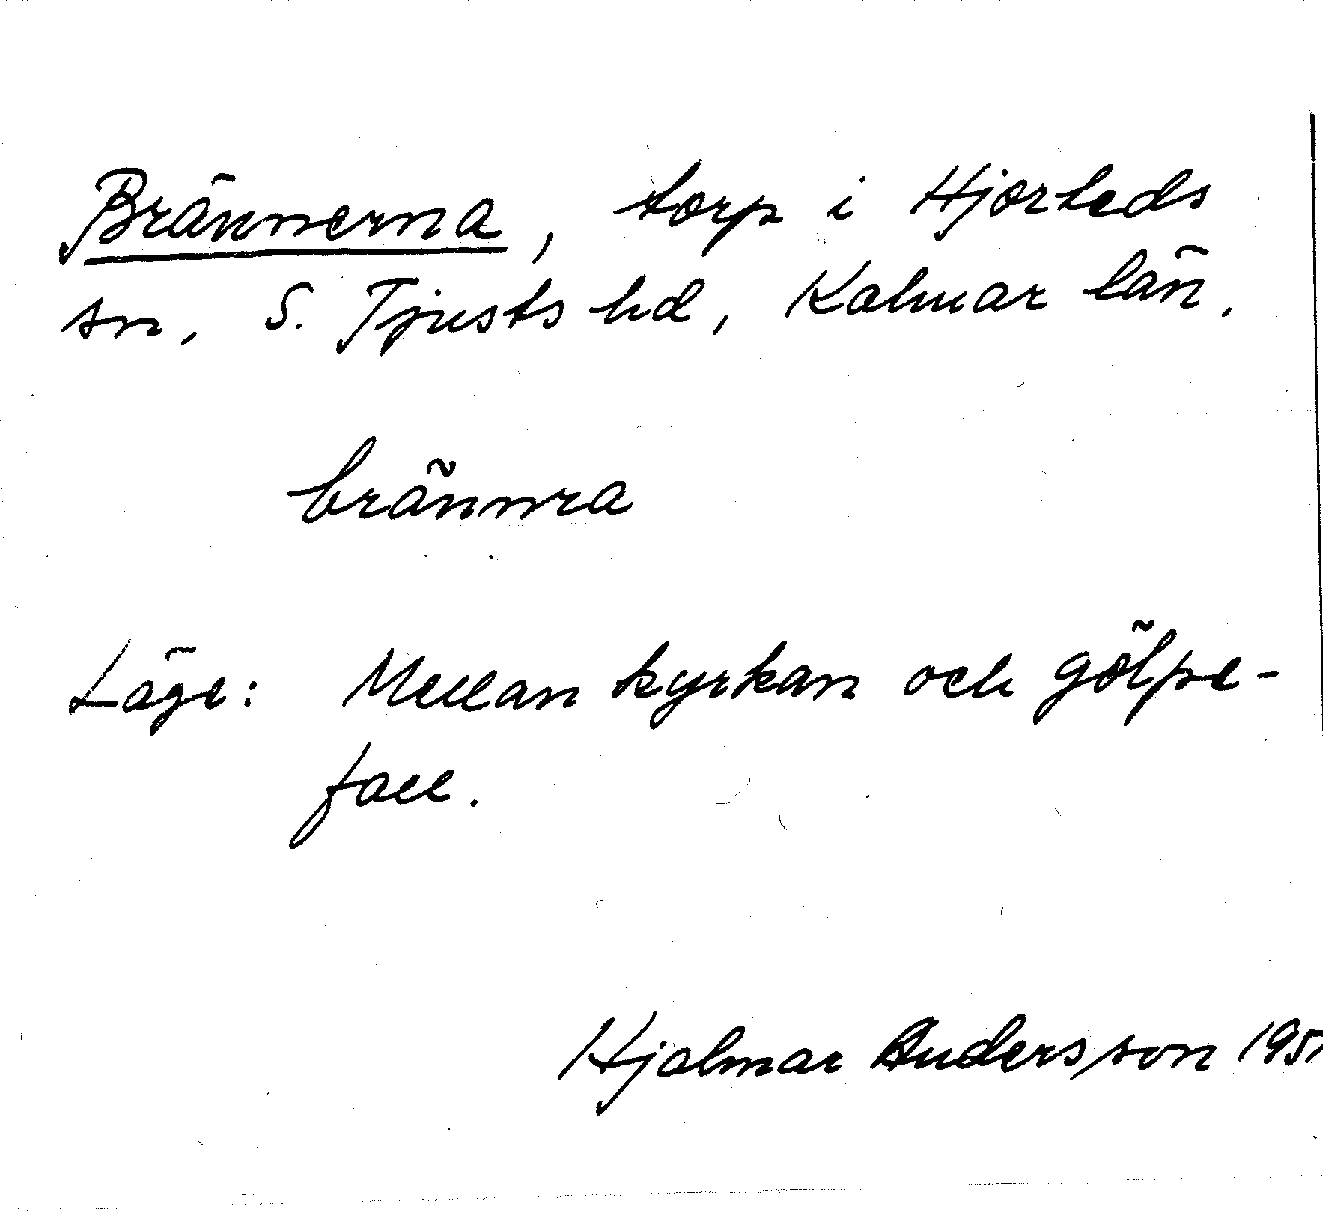 Brännerna, torp i Hjorteds
sn, S. Tjusts hd, Kalmar län.
brännra
Läge: Mellan kyrkan och gölpe-
fall.
Hjalmar Andersson